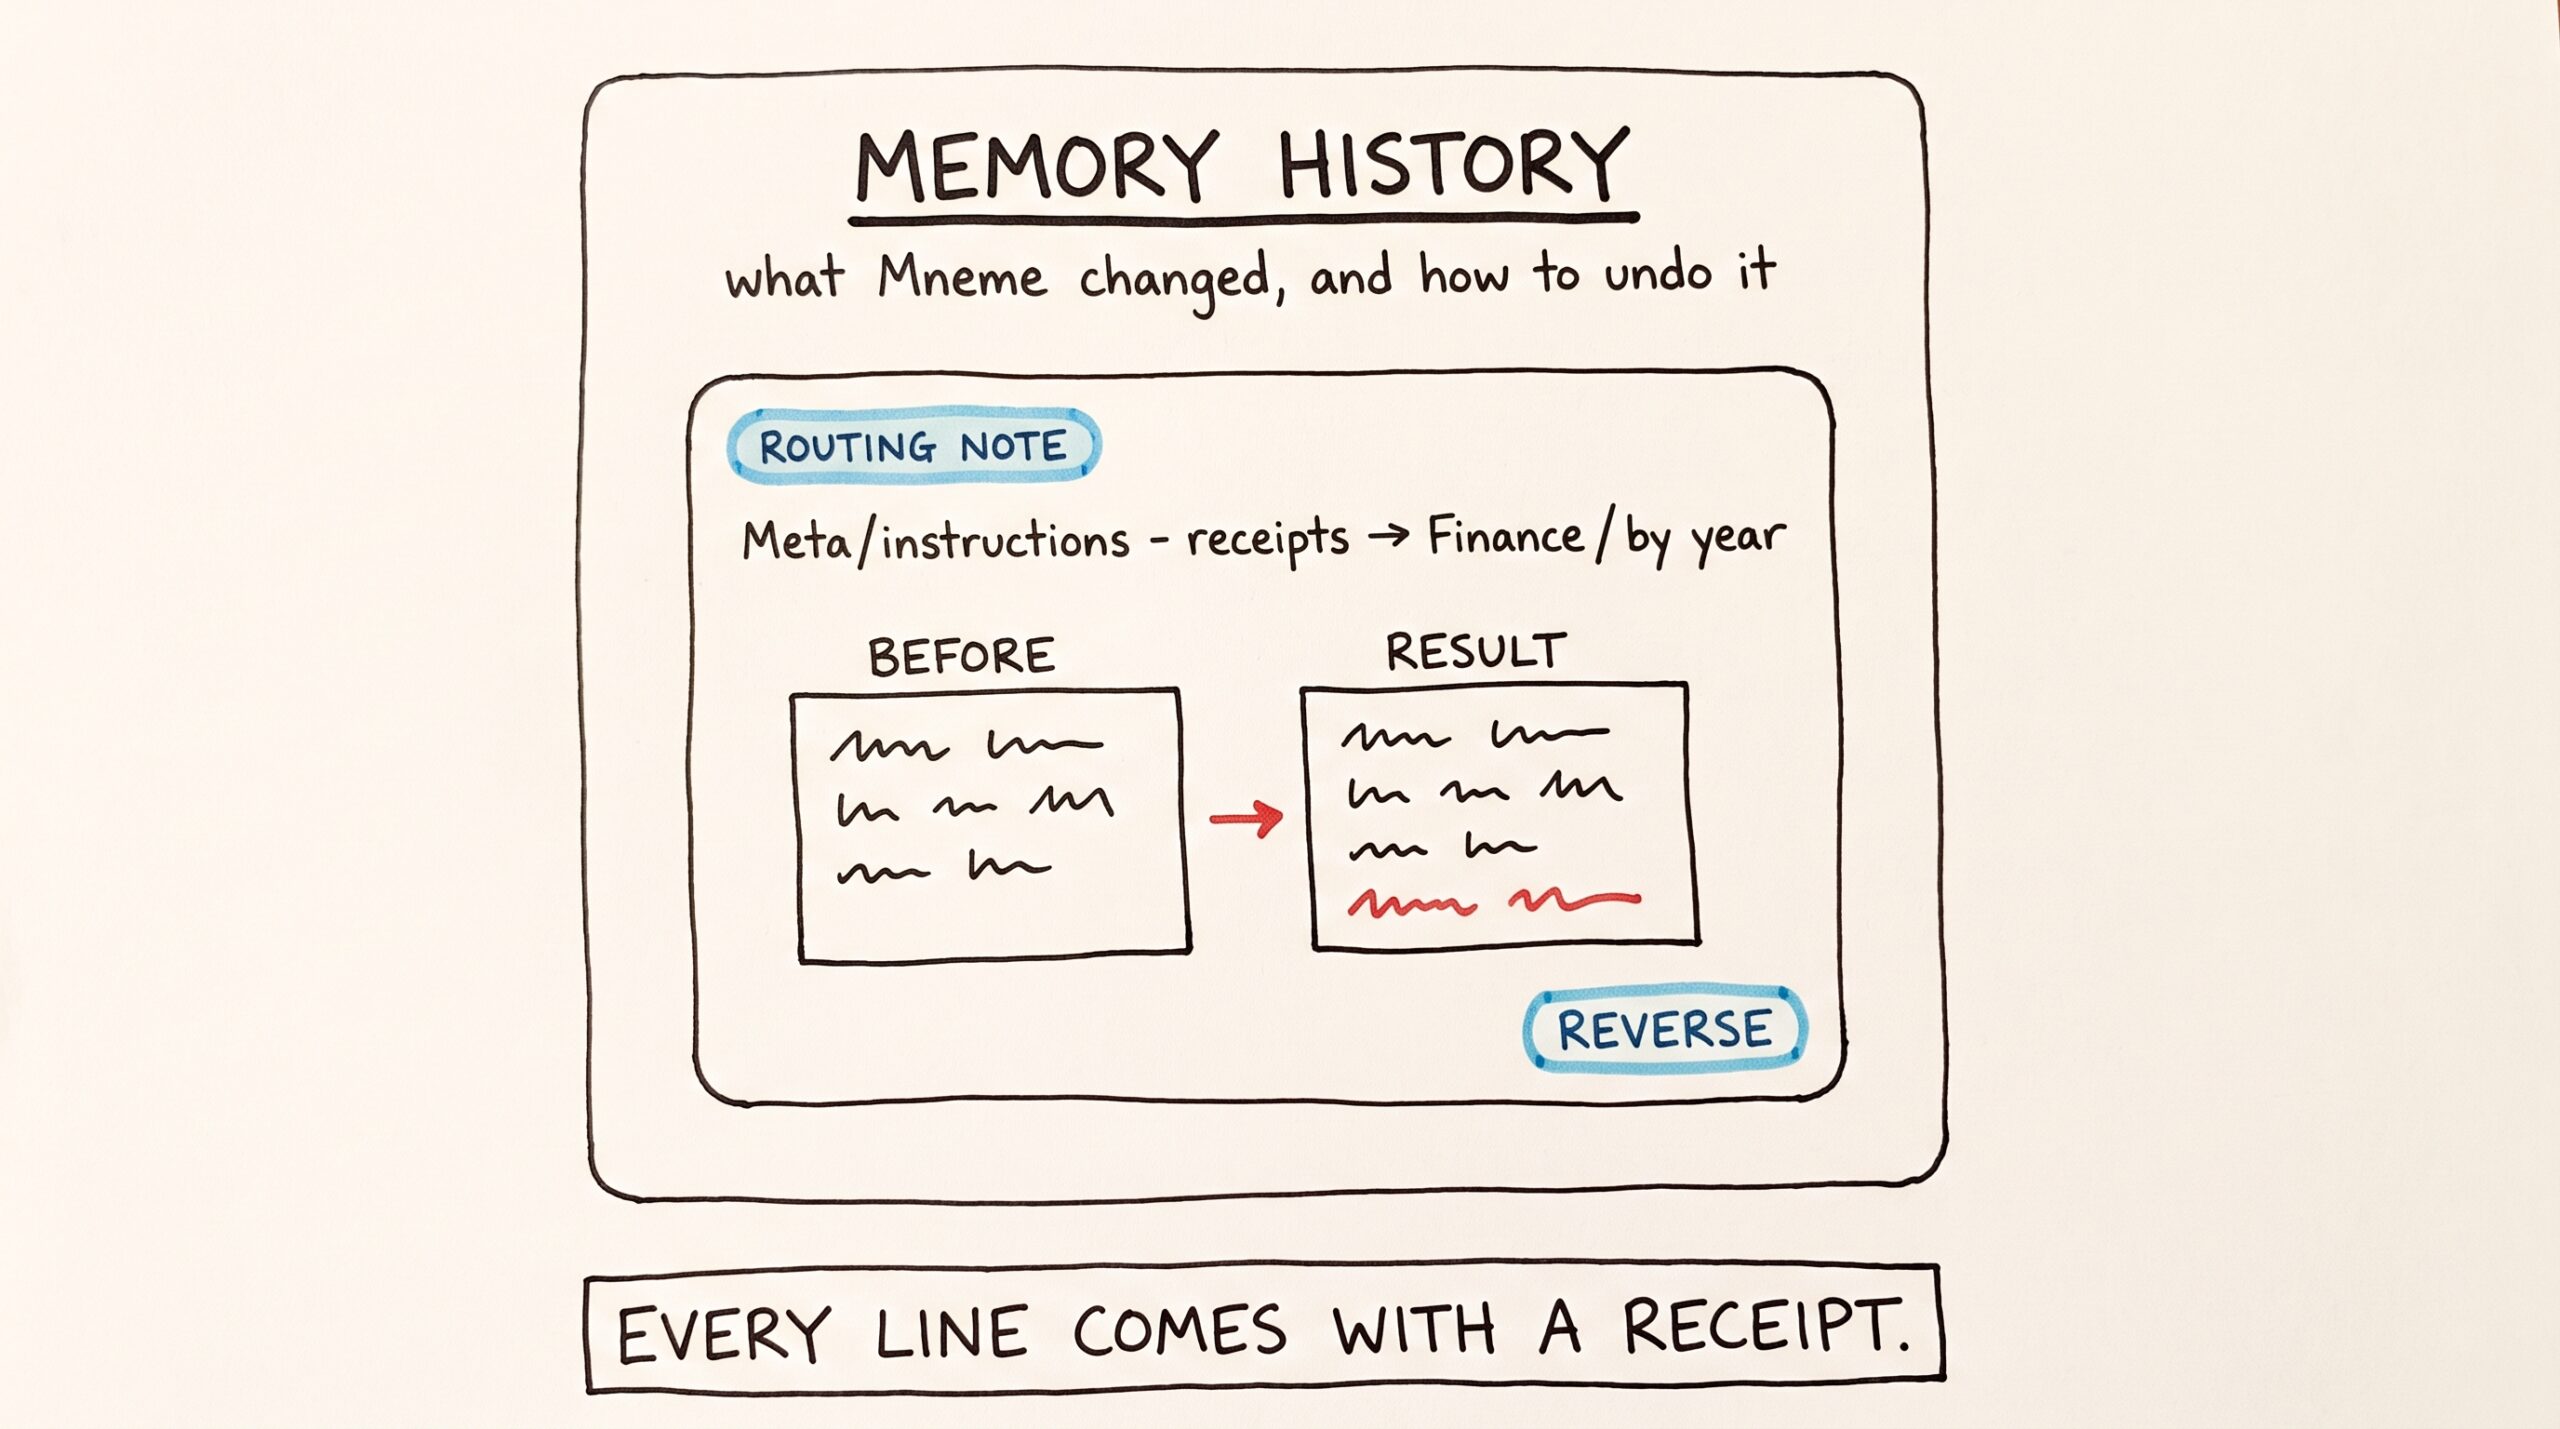 MEMORY HISTORY
what Mneme changed, and how to undo it
ROUTING NOTE
Meta/instructions - receipts → Finance/by year
BEFORE
RESULT
REVERSE
EVERY LINE COMES WITH A RECEIPT.